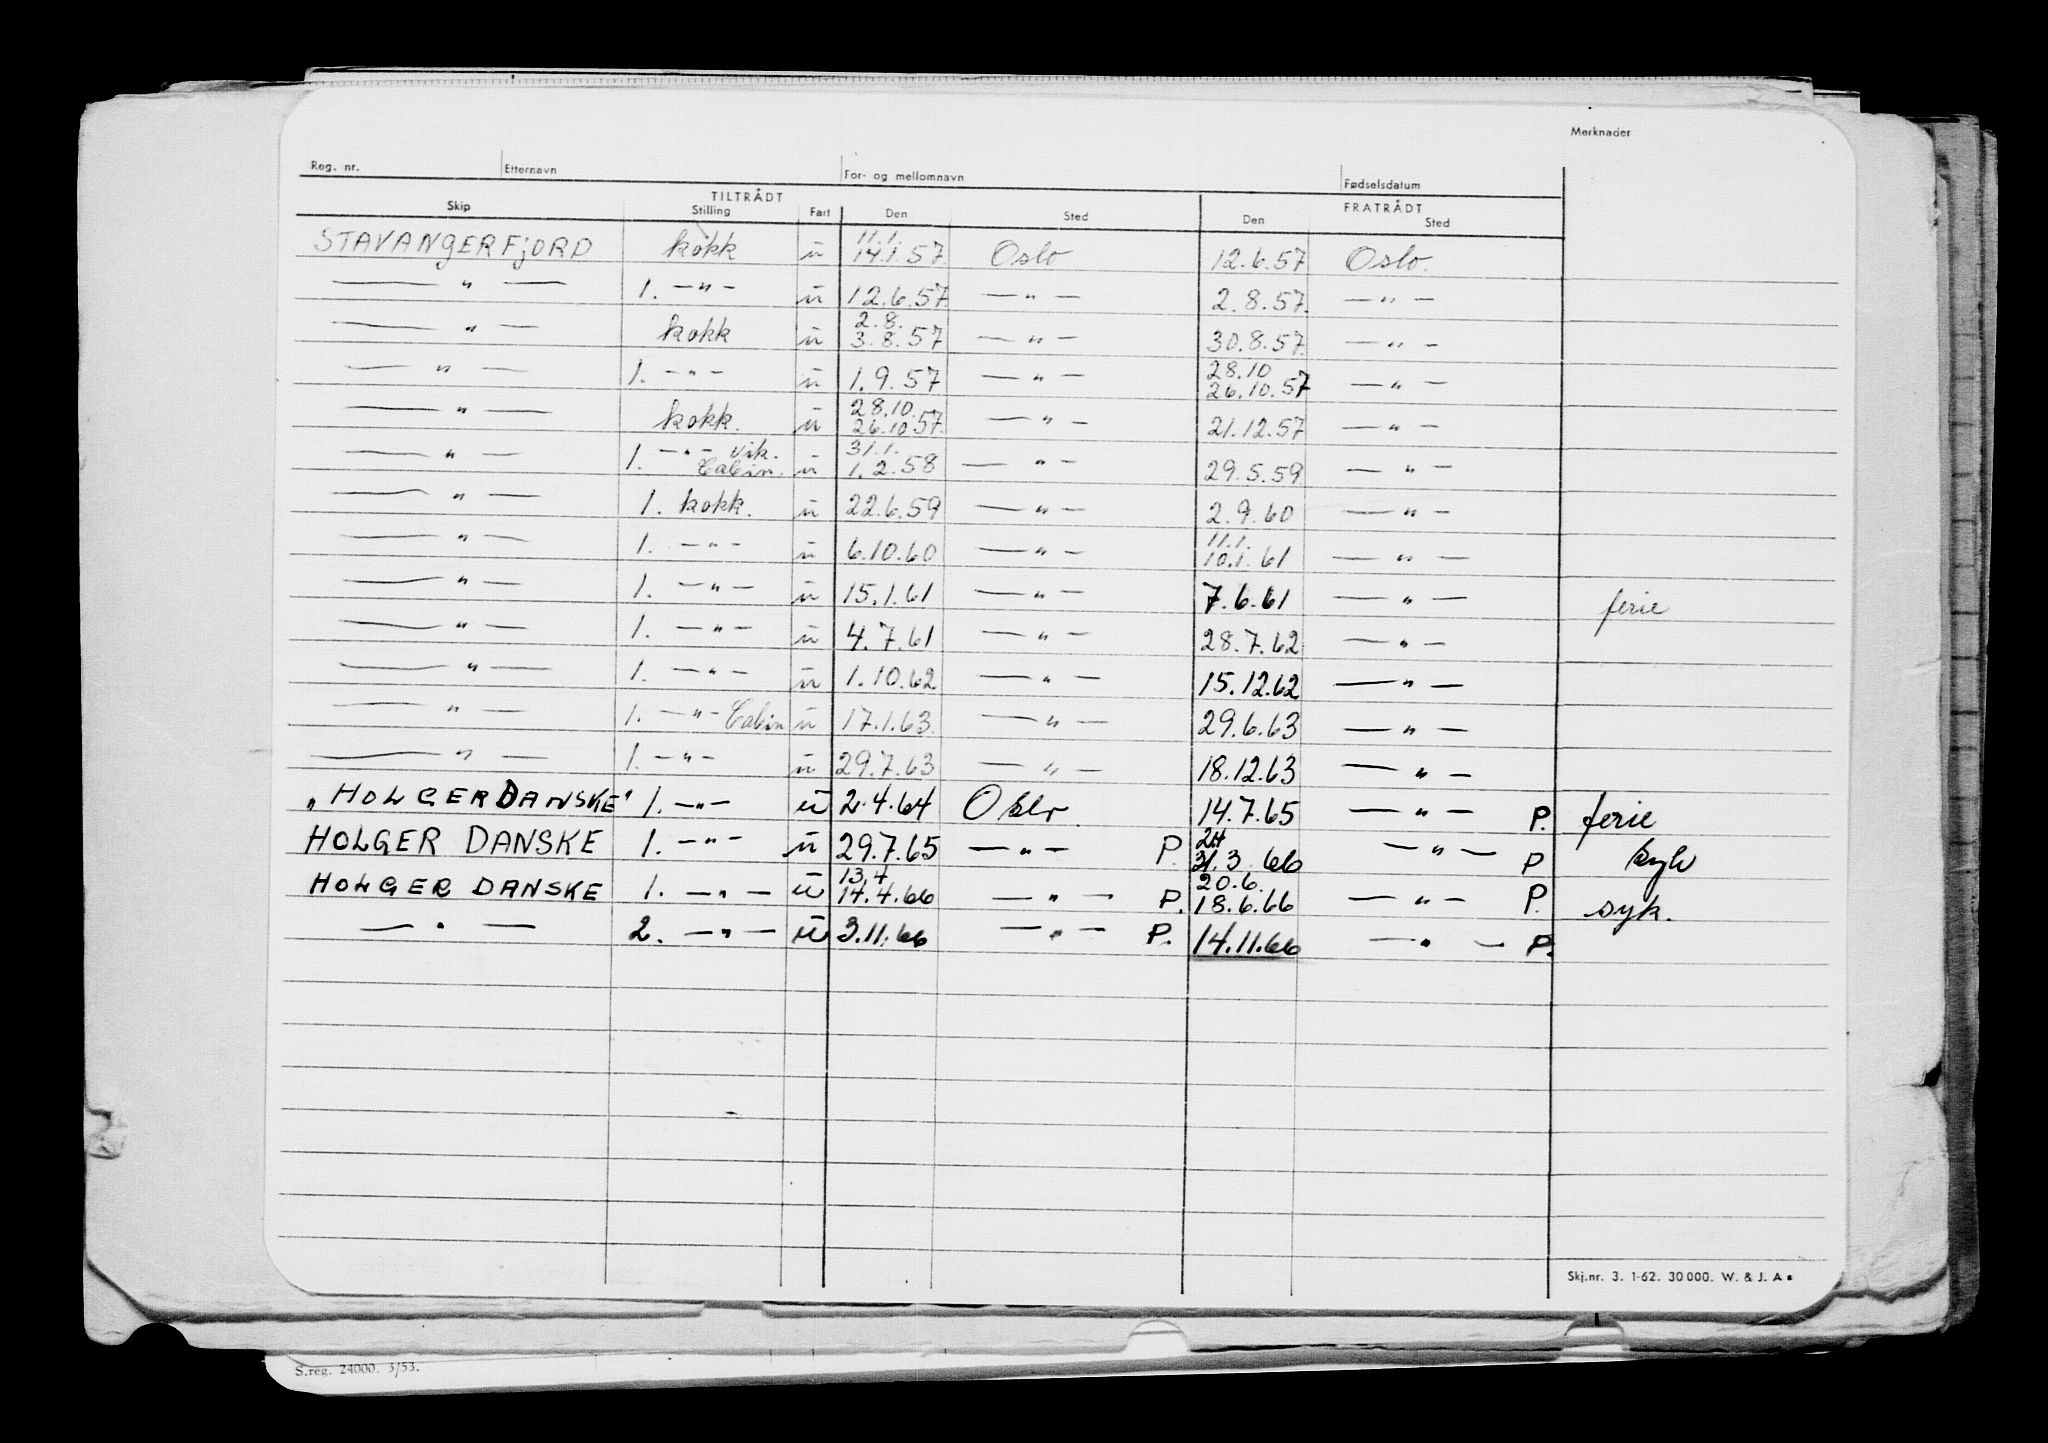 Merknader
Reg. nr. Etternavn For- og mellomnavn Fødselsdatum
TILTRÅDT FRATRÅDT
Skip Stilling Fart Den Sted Den Sted
11.1.
STAVANGERFJORD kokk ū 14.1.57 Oslo 12.6.57 Oslo.
— " — 1. — " — ū 12.6.57 — " — 2.8.57. — " —
2.8.
— " — kokk ū 3.8.57 — " — 30.8.57. — " —
28.10
— " — 1. — " — ū 1.9.57 — " — 26.10.57 — " —
28.10.
— " — kokk. ū 26.10.57. — " — 21.12.57 — " —
vik. 31.1.
— " — 1. — " — Cabin. ū 1.2.58 — " — 29.5.59 — " —
— " — 1. kokk. ū 22.6.59 — " — 2.9.60 — " —
11.1.
— " — 1. — " — ū 6.10.60 — " — 10.1.61 — " —
— " — 1. — " — ū 15.1.61 — " — 7.6.61 — " — ferie
— " — 1. — " — ū 4.7.61 — " — 28.7.62 — " —
— " — 1. — " — ū 1.10.62 — " — 15.12.62 — " —
— " — 1. — " — Cabin ū 17.1.63. — " — 29.6.63 — " —
— " — 1. — " — ū 29.7.63 — " — 18.12.63 — " —
"HOLGER DANSKE" 1. — " — ū 2.4.64 Oslo. 14.7.65 — " — P. ferie
24
HOLGER DANSKE 1. — " — ū 29.7.65 — " — P. 31.3.66 — " — P syk
13.4 20.6.
HOLGER DANSKE 1. — " — ū 14.4.66 — " — P. 18.6.66 — " — P. syk.
— " — 2. — " — ū 3.11.66 — " — P. 14.11.66 — " — P.
Skj.nr. 3. 1-62. 30 000. W. & J. A s
S.reg. 24000. 3/53.